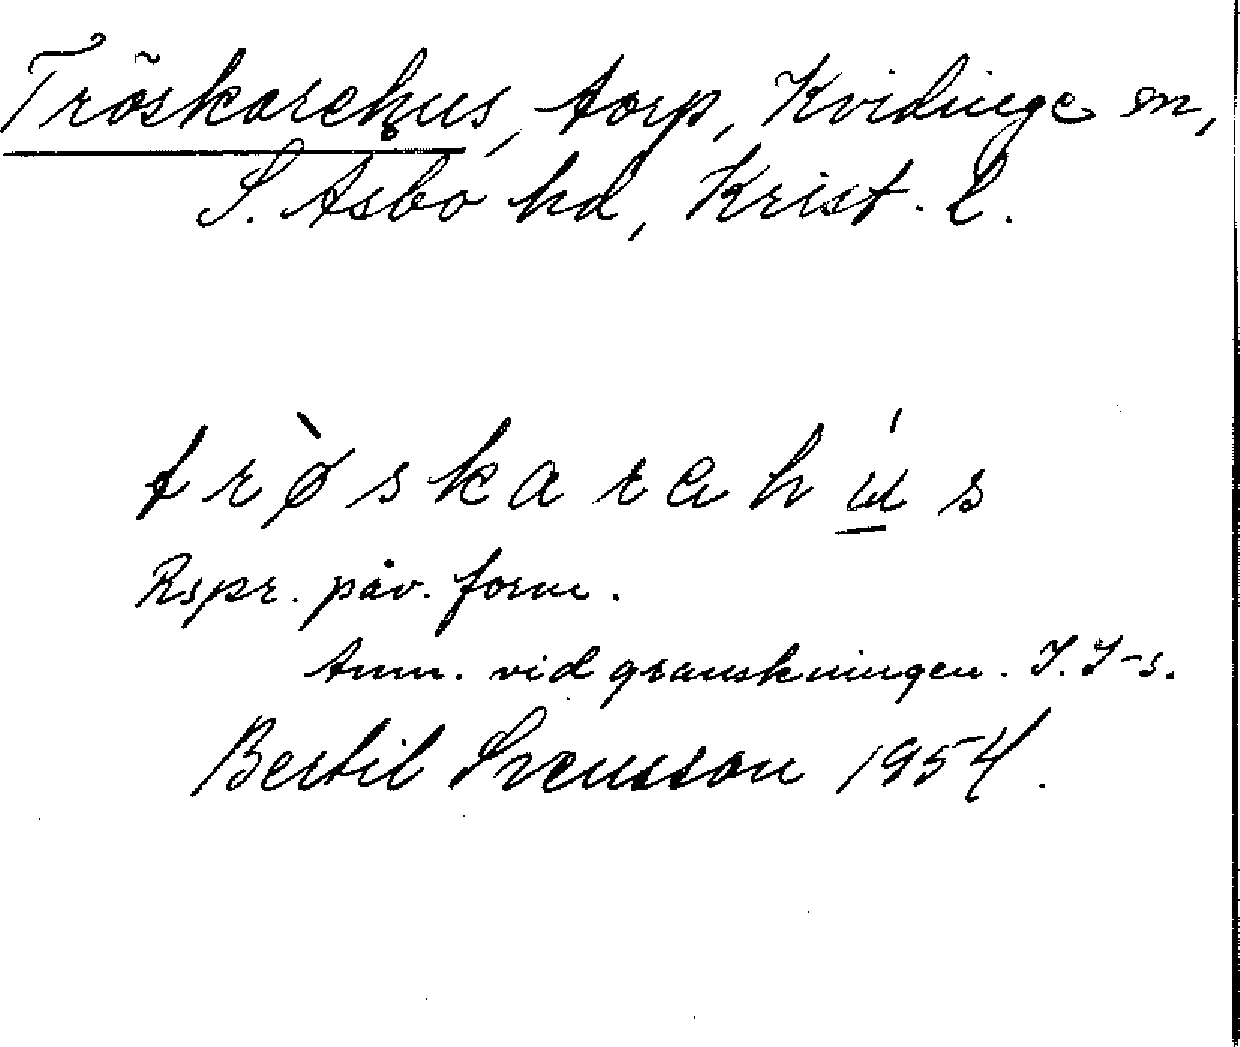 Tröskarehus, torp, Kvidinge sn,
S. Åsbo hd, Krist. l.
trø̀skarahú̲s
Rspr. påv. form.
Ann. vid granskningen. I. I-s.
Bertil Svensson 1954.